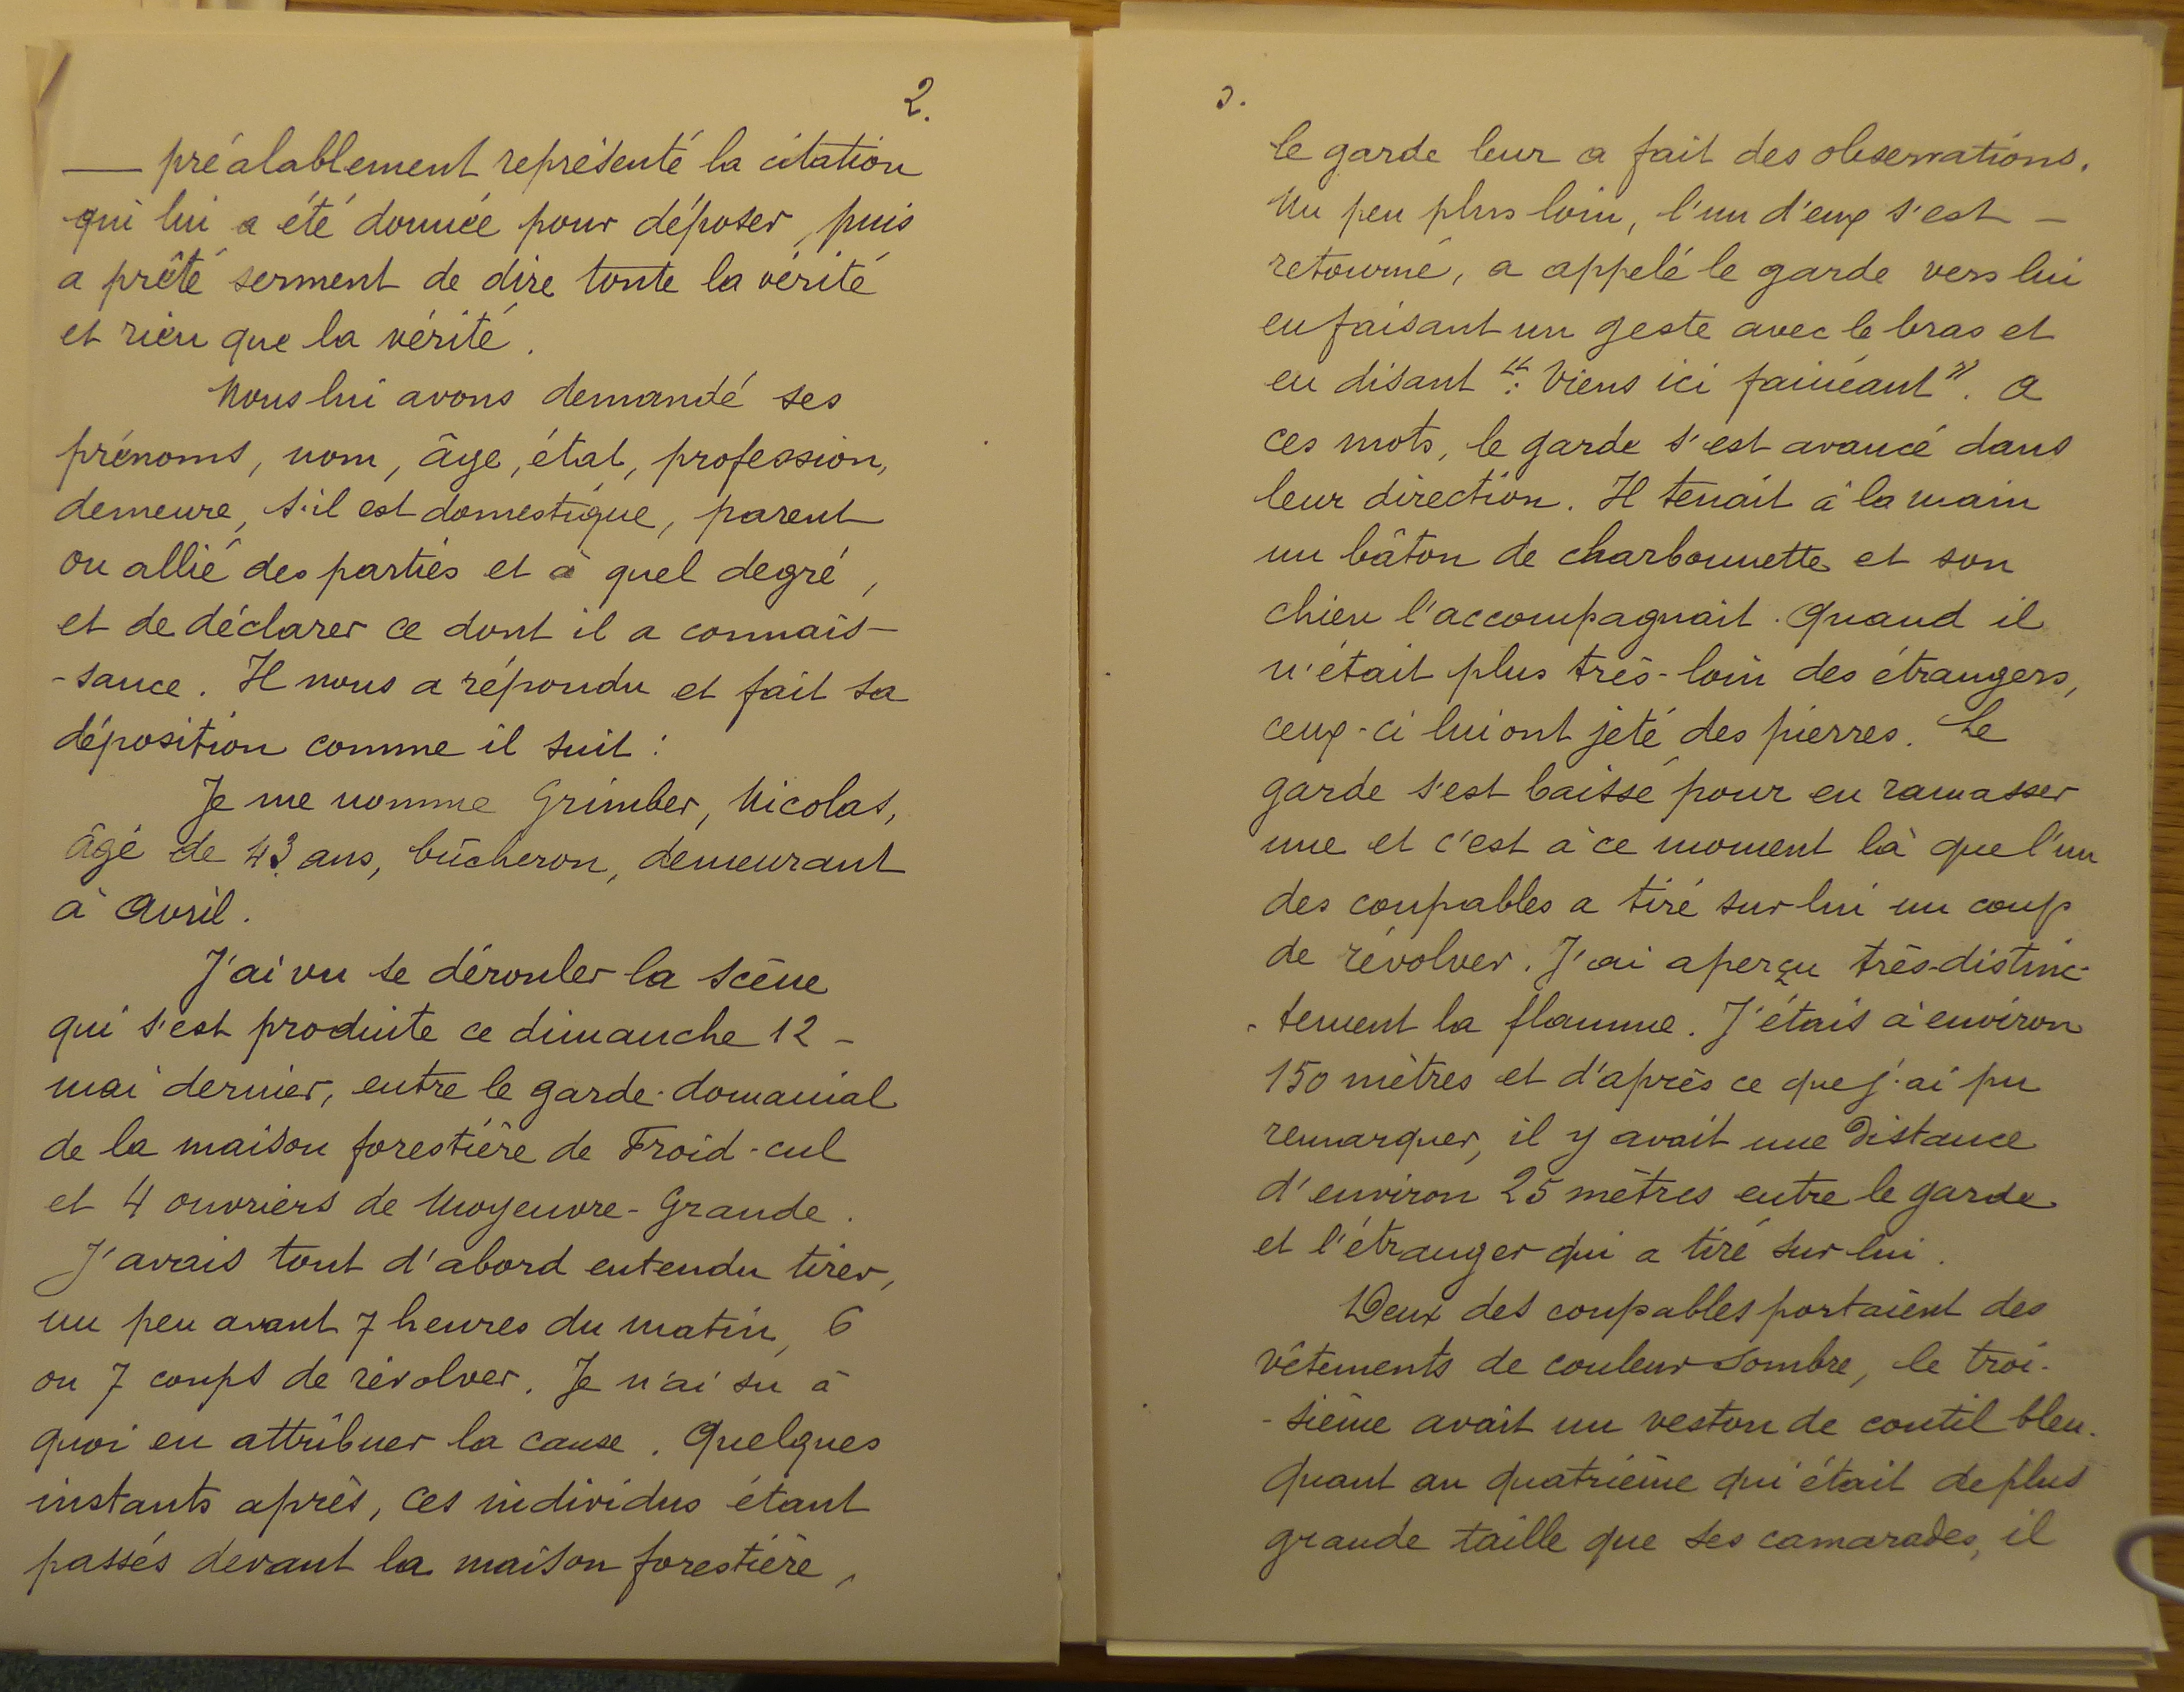 2.
— préalablement représenté la citation
qui lui a été donnée pour déposer, puis
a prêté serment de dire toute la vérité
et rien que la vérité.
Nous lui avons demandé ses
prénoms, nom, âge, état, profession,
demeure, s'il est domestique, parent
ou allié des parties et à quel degré,
et de déclarer ce dont il a connais-
-sance. Il nous a répondu et fait sa
déposition comme il suit :
Je me nomme Grimber, Nicolas,
âgé de 43 ans, bûcheron, demeurant
à Avril.
J'ai vu se dérouler la scène
qui s'est produite ce dimanche 12 -
mai dernier, entre le garde-domanial
de la maison forestière de Froid-cul
et 4 ouvriers de Moyeuvre-Grande.
J'avais tout d'abord entendu tirer,
un peu avant 7 heures du matin, 6
ou 7 coups de révolver. Je n'ai su à
quoi en attribuer la cause. Quelques
instants après, ces individus étant
passés devant la maison forestière,
3.
le garde leur a fait des observations.
Un peu plus loin, l'un d'eux s'est -
retourné, a appelé le garde vers lui
en faisant un geste avec le bras et
en disant ": Viens ici fainéant". A
ces mots, le garde s'est avancé dans
leur direction. Il tenait à la main
un bâton de charbonnette et son
chien l'accompagnait. Quand il
n'était plus très-loin des étrangers,
ceux-ci lui ont jeté des pierres. Le
garde s'est baissé pour en ramasser
une et c'est à ce moment là que l'un
des coupables a tiré sur lui un coup
de révolver. J'ai aperçu très-distinc-
-tement la flamme. J'étais à environ
150 mètres et d'après ce que j'ai pu
remarquer, il y avait une distance
d'environ 25 mètres entre le garde
et l'étranger qui a tiré sur lui.
Deux des coupables portaient des
vêtements de couleur sombre, le troi-
-sième avait un veston de coutil bleu.
Quant au quatrième qui était de plus
grande taille que ses camarades, il